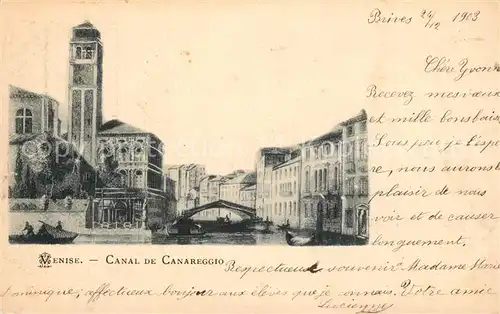 Brives 24/12 1903
Chère Yvonne
Recevez mes vœux
et mille bons bais
Sous peu je l'espè
nous aurons l
plaisir de nous
voir et de causer
longuement.
VENISE. — CANAL DE CANAREGGIO
Respectueux souvenir Madame Marie
affectueux bonjour aux élèves que je connais. Votre amie
Lucienne